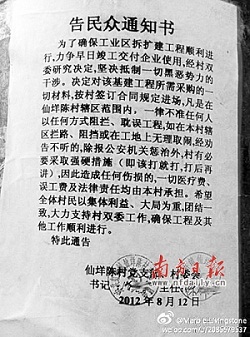 告民众通知书
为了确保工业区拆扩建工程顺利进
行,力争早日竣工交付企业使用,经村
双委研究决定,坚决抵制一切黑恶势力的
干涉。决定对该基建工程所需采购的一
切材料,按村签订合同规定进场,凡是在
仙垟陈村辖区范围内,一律不准任何人
以任何方式阻拦、耽误工程,如在本村辖
区拦路、阻挡或在工地上无理取闹,经劝
告不听的,除报公安机关惩治外,村有必
要采取强硬措施(即该打就打,打后再
讲),因此造成任何伤损的,一切医疗费、
误工费及法律责任均由本村承担。希望
全体村民以集体利益、大局为重,团结一
致,大力支持村双委工作,确保工程及其
他工作顺利进行。
特此通告
仙垟陈村党支部
书记
主任
2012年8月12日
南方日报
www.nfdaily.cn